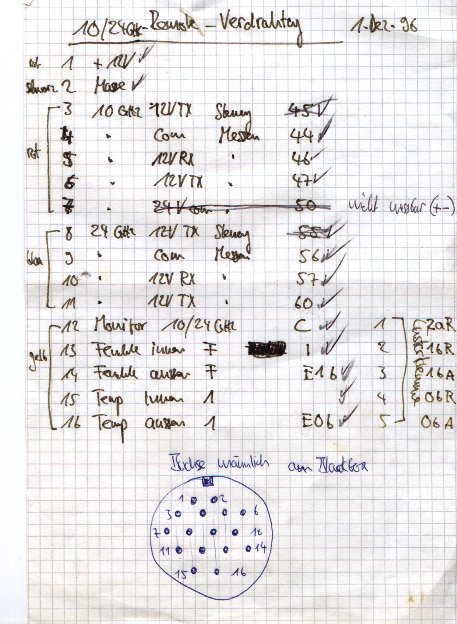 10/24GHz-Remote-Verdrahtung 1. Dez. 96
rot 1 + 12V ✓
schwarz 2 Masse ✓
3 10 GHz 12V TX Steuerung 45 ✓
4 " Com Messen 44 ✓
rot 5 " 12V RX " 46 ✓
6 " 12V TX " 47 ✓
7 " 24V com " 50 nicht messbar (+-)
8 24 GHz 12V TX Steuerung 55 ✓
blau 9 " Com Messen 56 ✓
10 " 12V RX " 57 ✓
11 " 12V TX " 60 ✓
12 Monitor 10/24GHz C ✓ 1 20R
gelb 13 Feuchte innen F I ✓ 2 16R
14 Feuchte aussen F E16 ✓ 3 16A
15 Temp innen 1 ✓ 4 06R
16 Temp aussen 1 E06 ✓ 5 06A
Buchse männlich am Blackbox
1 2
3 6
7 10
11 14
15 16